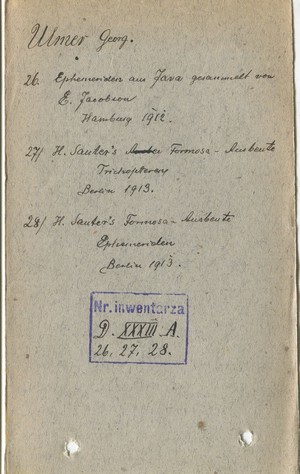 Ulmer Georg.
26. Ephemeriden aus Java gesammelt von
E. Jacobson
Hamburg 1912.
27/ H. Sauter's Formosa - Ausbeute
Trichopteren
Berlin 1913.
28/ H. Sauter's Formosa - Ausbeute
Ephemeriden
Berlin 1913.
Nr. inwentarza
D. XXXIII A
26, 27, 28.